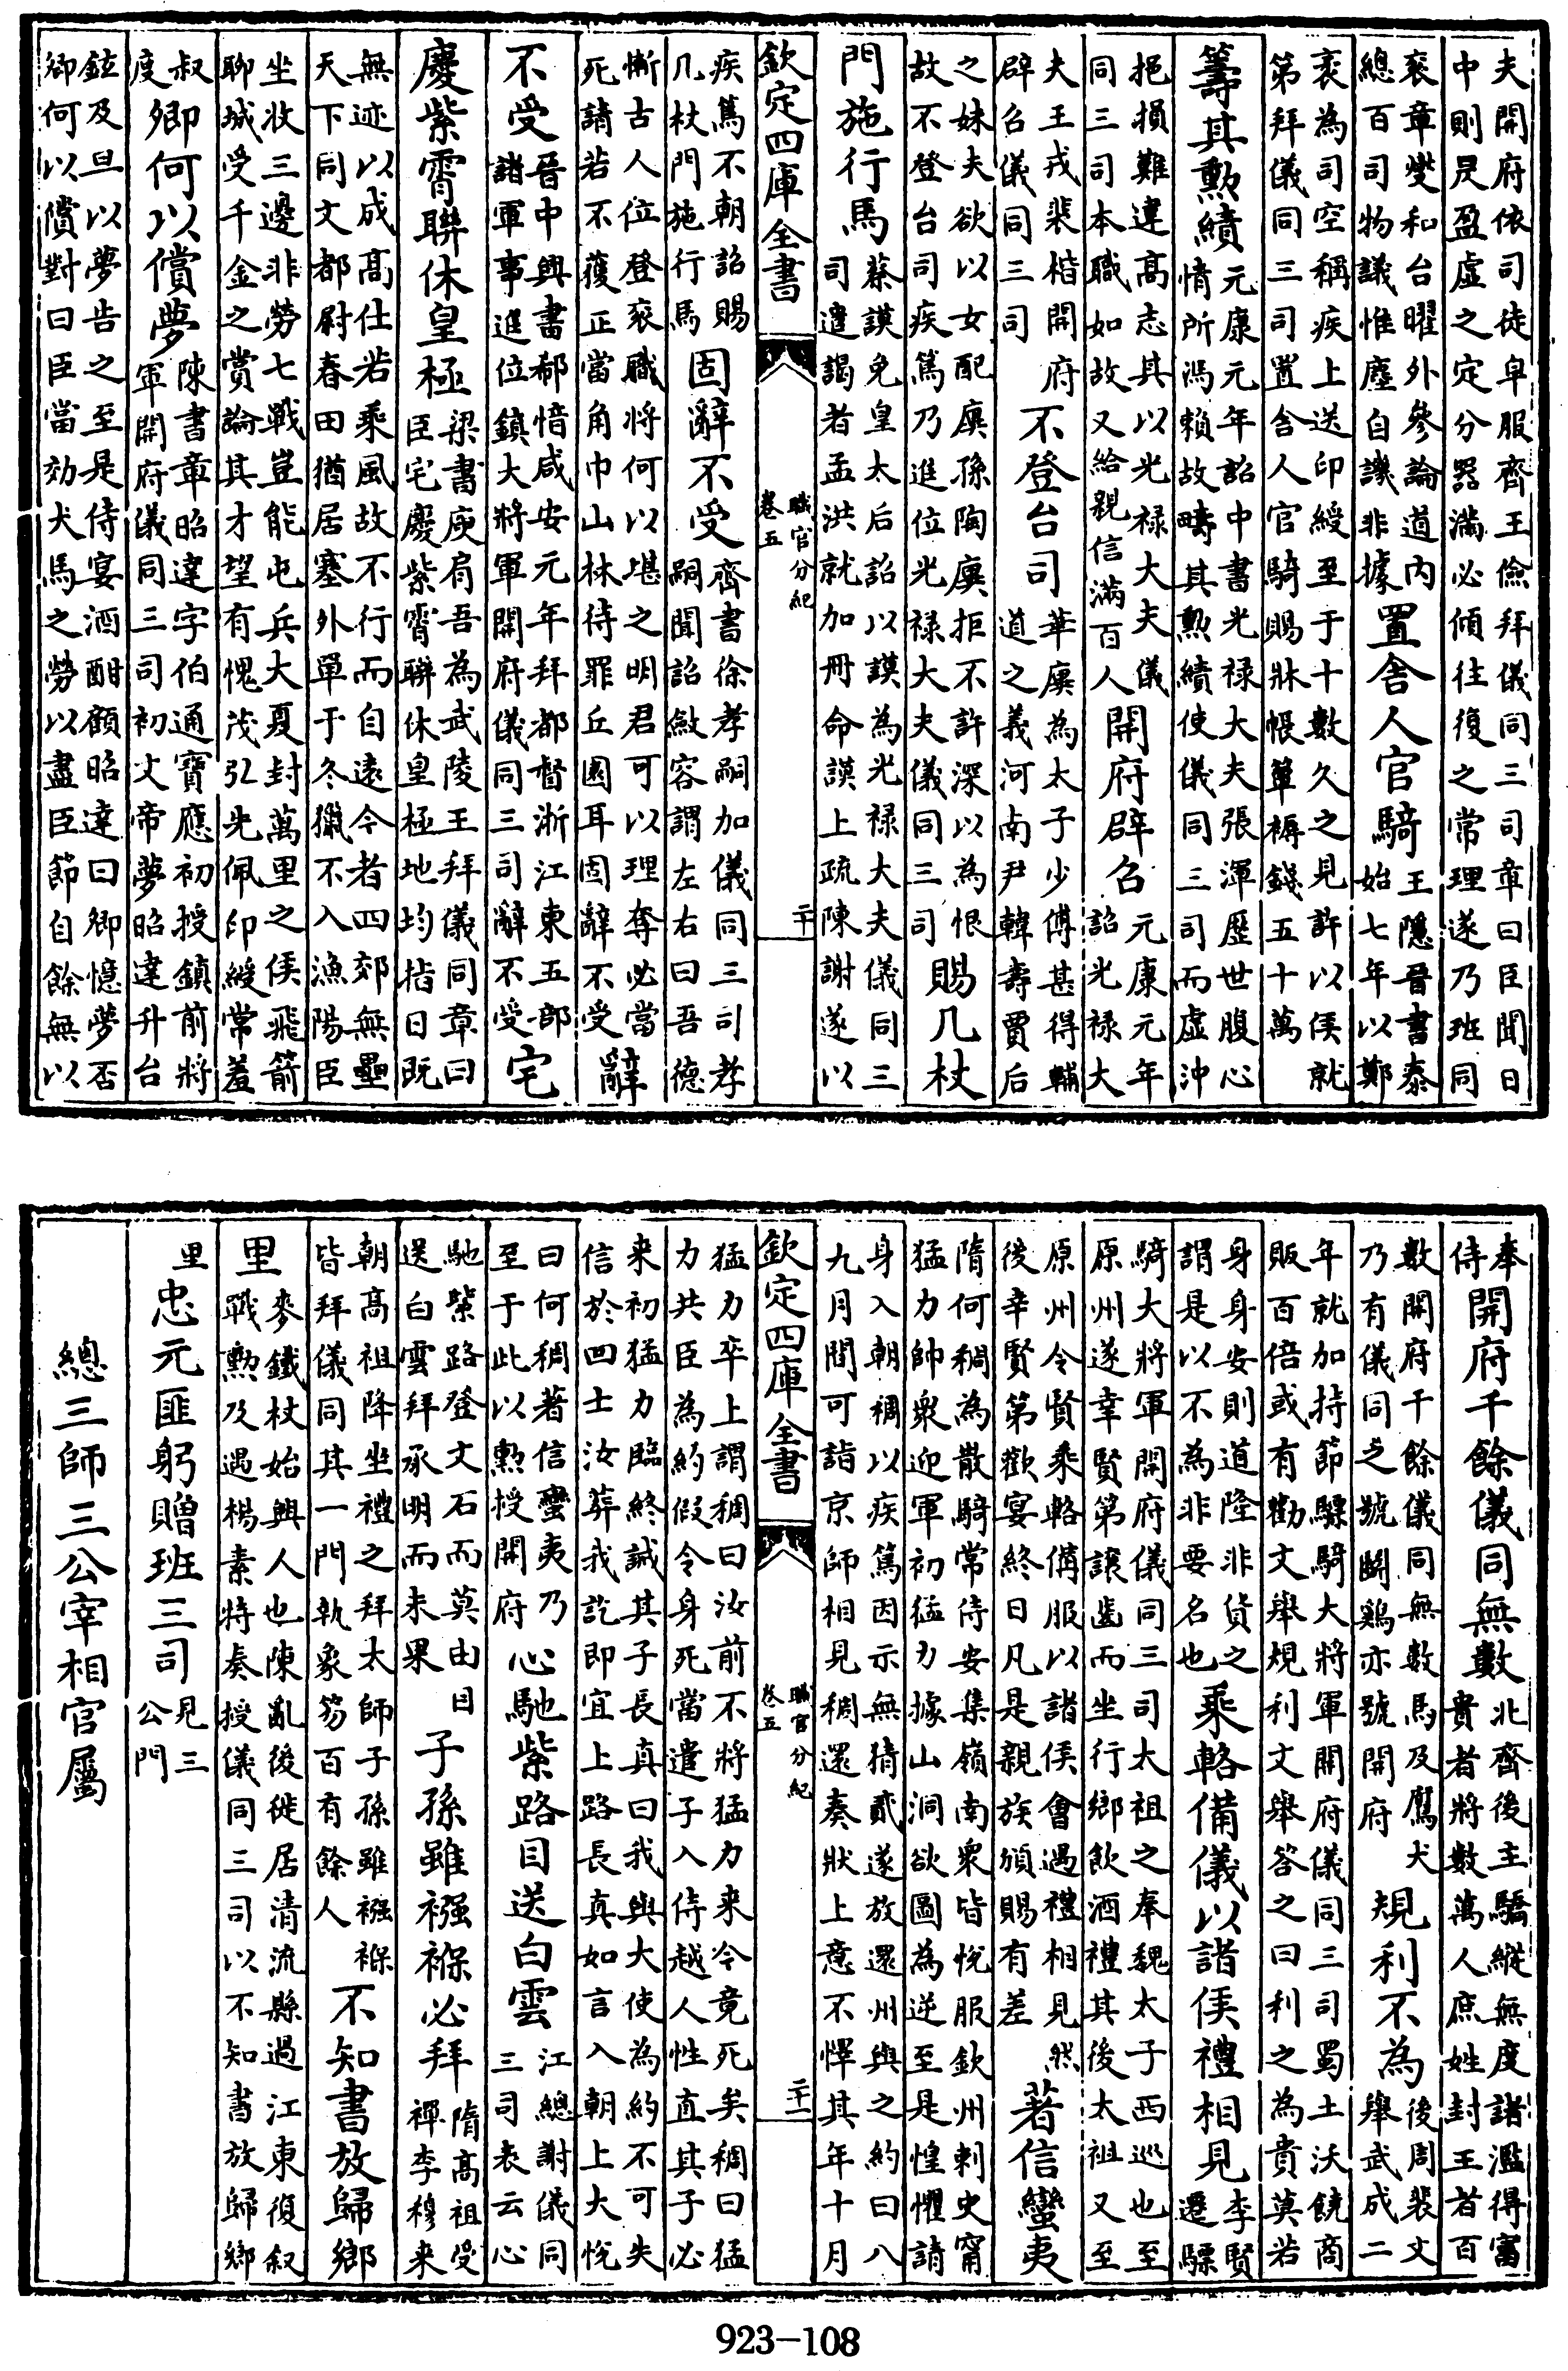 夫開府依司徒皁服齊王儉拜儀同三司章曰臣聞日
中則昃盈虚之定分器滿必傾往復之常理遂乃班同
衮章爕和台曜外參論道内
總百司物議惟塵自譏非據
置舍人官騎
王隱晉書泰
始七年以鄭
袤為司空稱疾上送印綬至于十數久之見許以侯就
第拜儀同三司置舍人官騎賜牀帳簟褥錢五十萬
籌其勲績
元康元年詔中書光禄大夫張渾歷世腹心
情所馮賴故疇其勲績使儀同三司而虚沖
挹損難違髙志其以光禄大夫儀
同三司本職如故又給親信滿百人
開府辟召
元康元年
詔光禄大
夫王戎裴楷開府
辟召儀同三司
不登台司
華廙為太子少傅甚得輔
道之義河南尹韓壽賈后
之妹夫欲以女配廙孫陶廙拒不許深以為恨
故不登台司疾篤乃進位光禄大夫儀同三司
賜几杖
門施行馬
蔡謨免皇太后詔以謨為光禄大夫儀同三
司遣謁者孟洪就加冊命謨上疏陳謝遂以
欽定四庫全書
職官分紀
卷五
二十
疾篤不朝詔賜
几杖門施行馬
固辭不受
齊書徐孝嗣加儀同三司孝
嗣聞詔斂容謂左右曰吾德
慚古人位登衮職将何以堪之明君可以理奪必當
死請若不獲正當角巾山林待罪丘園耳固辭不受
辭
不受
晉中興書郗愔咸安元年拜都督浙江東五部
諸軍事進位鎮大将軍開府儀同三司辭不受
宅
慶紫霄聯休皇極
梁書庾肩吾為武陵王拜儀同章曰
臣宅慶紫霄聯休皇極地均指日既
無迹以成髙仕若乘風故不行而自遠今者四郊無壘
天下同文都尉春田猶居塞外單于冬獵不入漁陽臣
坐收三邊非勞七戰豈能屯兵大夏封萬里之侯飛箭
聊城受千金之賞論其才望有愧茂弘先佩印綬常羞
叔
度
卿何以償夢
陳書章昭達字伯通寶應初授鎮前將
軍開府儀同三司初文帝夢昭達升台
鉉及旦以夢告之至是侍宴酒酣顧昭達曰卿憶夢否
卿何以償對曰臣當効犬馬之勞以盡臣節自餘無以
奉
侍
開府千餘儀同無數
北齊後主驕縱無度諸濫得富
貴者將數萬人庶姓封王者百
數開府千餘儀同無數馬及鷹犬
乃有儀同之號鬭鷄亦號開府
規利不為
後周裴文
舉武成二
年就加持節驃騎大將軍開府儀同三司蜀土沃饒商
販百倍或有勸文舉規利文舉答之曰利之為貴莫若
身身安則道隆非貨之
謂是以不為非要名也
乘輅備儀以諸侯禮相見
李賢
遷驃
騎大將軍開府儀同三司太祖之奉魏太子西巡也至
原州遂幸賢第讓齒而坐行鄉飲酒禮其後太祖又至
原州令賢乘輅備服以諸侯㑹遇禮相見然
後幸賢第歡宴終日凡是親族頒賜有差
著信蠻夷
隋何稠為散騎常侍安集嶺南衆皆悅服欽州刺史甯
猛力帥衆迎軍初猛力據山洞欲圖為逆至是惶懼請
身入朝稠以疾篤因示無猜貳遂放還州與之約曰八
九月間可詣京師相見稠還奏狀上意不懌其年十月
欽定四庫全書
職官分紀
卷五
二十一
猛力卒上謂稠曰汝前不將猛力来令竟死矣稠曰猛
力共臣為約假令身死當遣子入侍越人性直其子必
来初猛力臨終誡其子長真曰我與大使為約不可失
信於国士汝葬我訖即宜上路長真如言入朝上大悅
曰何稠著信蠻夷乃
至于此以勲授開府
心馳紫路目送白雲
江總謝儀同
三司表云心
馳紫路登文石而莫由目
送白雲拜承明而未果
子孫雖襁褓必拜
隋髙祖受
禪李穆来
朝髙祖降坐禮之拜太師子孫雖襁褓
皆拜儀同其一門執象笏百有餘人
不知書放歸鄉
里
麥鐵杖始興人也陳亂後徙居清流縣過江東復叙
戰勲及遇楊素將奏授儀同三司以不知書放歸鄉
里
忠元匪躬贈班三司
見三
公門
總三師三公宰相官屬
923-108